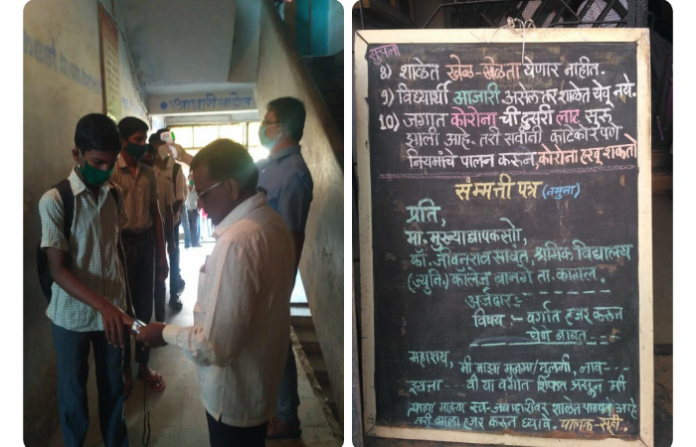 सूचना
8) शाळेत खेळ-खेळता येणार नाहीत.
९) विद्यार्थी आजारी असेल तर शाळेत येवू नये.
10) जगात कोरोना ची दुसरी लाट सुरू
झाली आहे. तरी सर्वांनी काटेकोरपणे
नियमांचे पालन करून, कोरोना हरवू शकतो
संम्मती पत्र (नमुना)
प्रति,
मा. मुख्याध्यापकसो,
सावंत, श्रमिक विद्यालय
(ज्युनि.) कॉलेज बानगे ता. कागल.
अर्जदार:-
विषय :- वर्गात हजर करून
घेणे बाबत
महाशय,
मी माझा मुलगा/मुलगी, नाव ---
इयत्ता --- वी या वर्गात शिकत असून मी
पाठवत आहे
तरी हजर करून घ्यावे. पालक-सही.